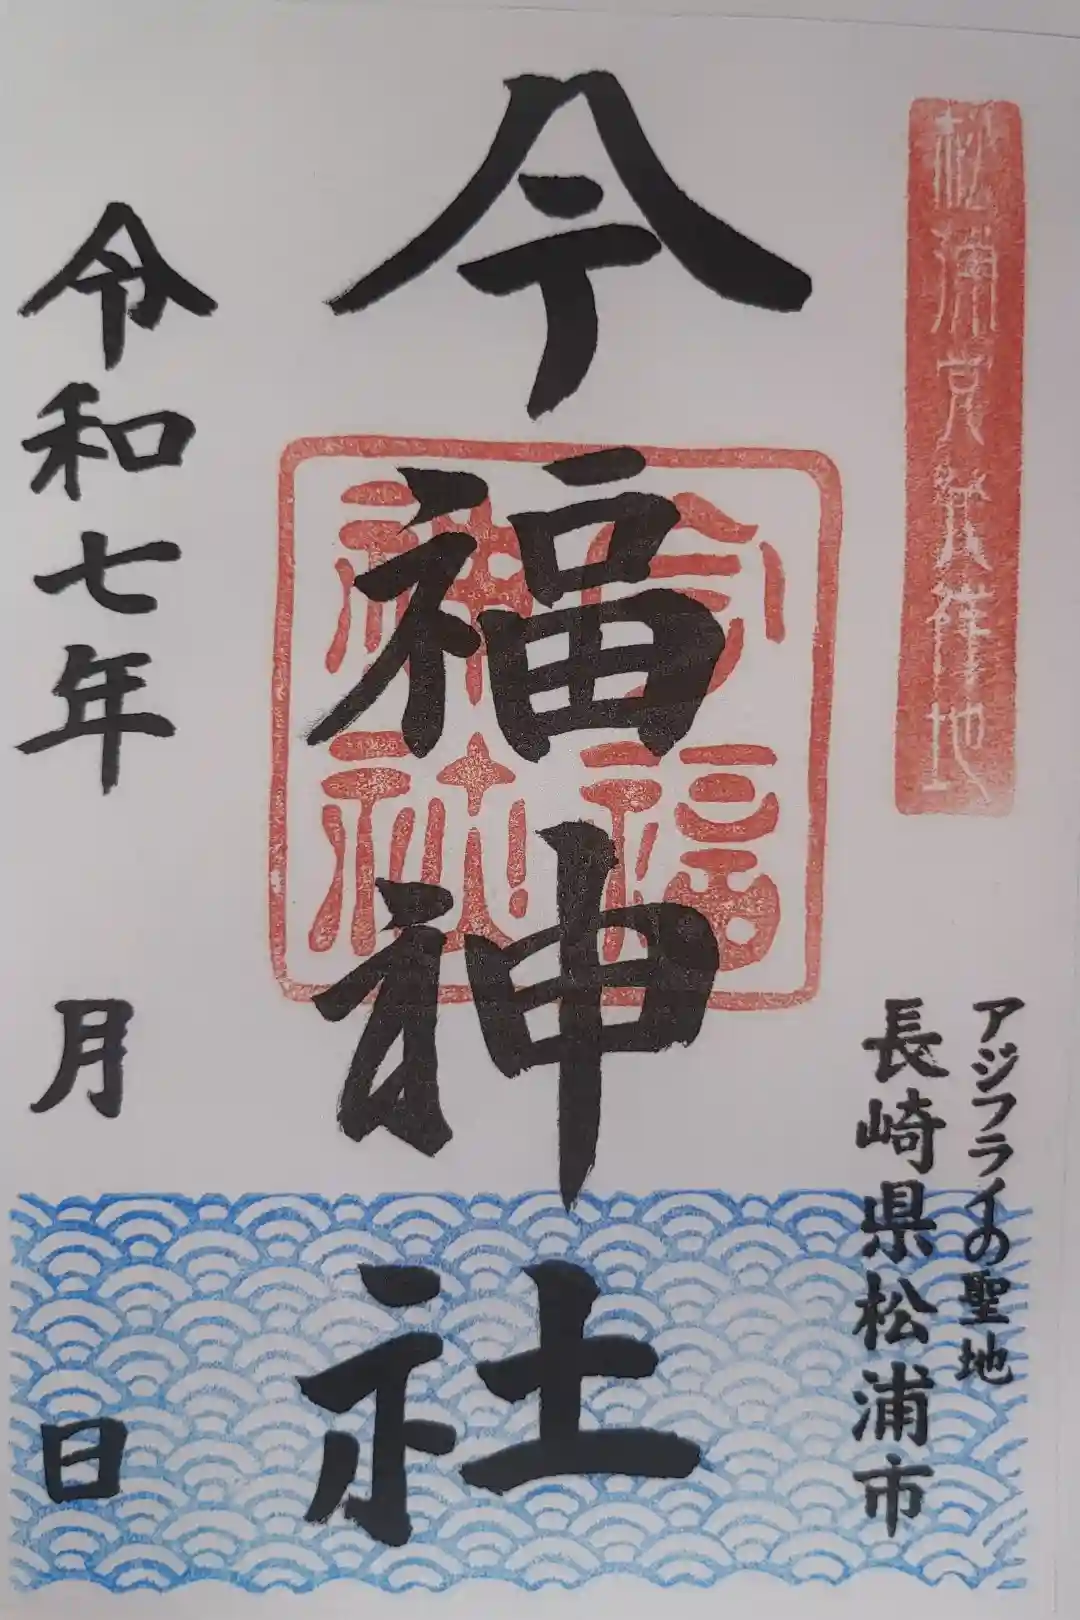 松浦党発祥地
アジフライの聖地
長崎県松浦市
今福神社
今福
神社
令和七年 月 日